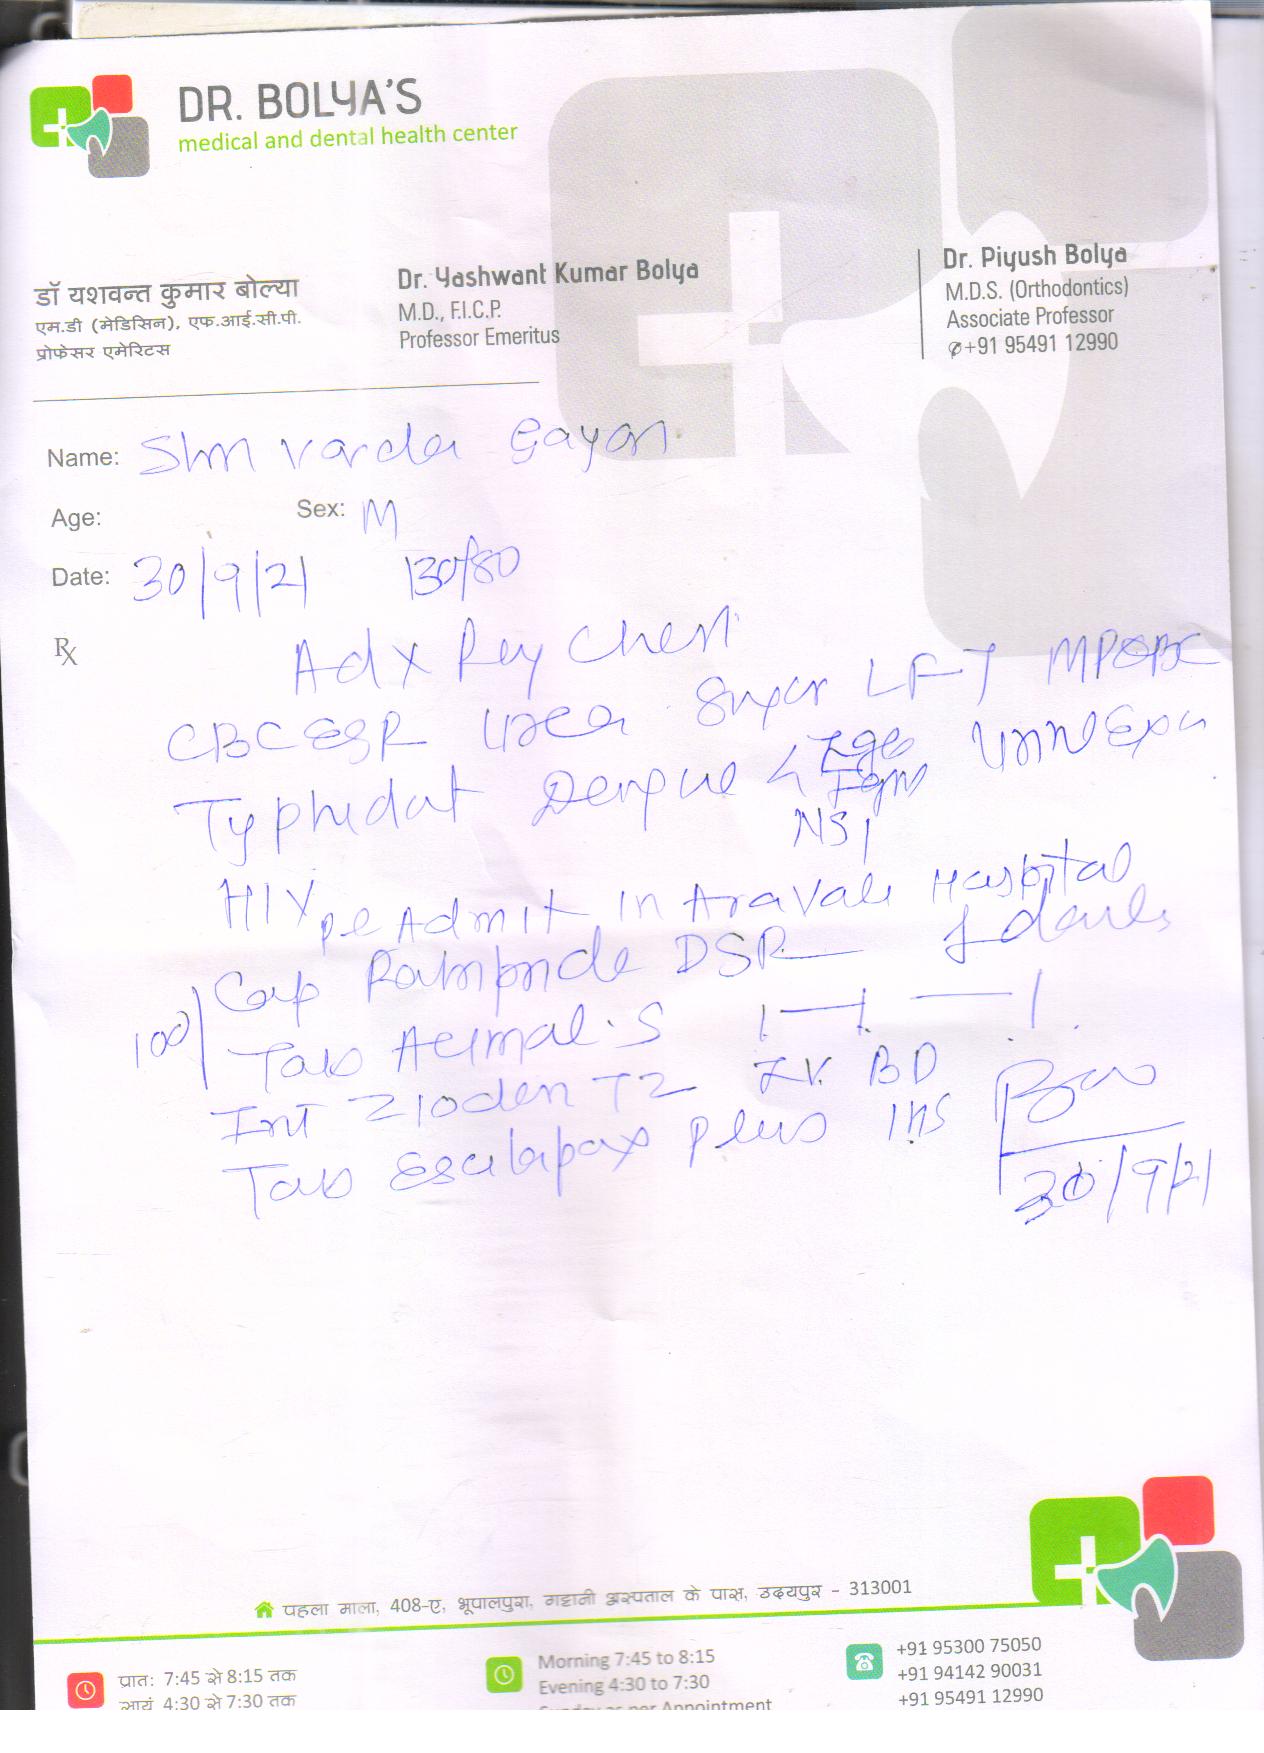 DR. BOLYA'S
medical and dental health center
डॉ यशवन्त कुमार बोल्या
एम.डी (मेडिसिन), एफ.आई.सी.पी.
प्रोफेसर एमेरिटस
Dr. Yashwant Kumar Bolya
M.D., F.I.C.P.
Professor Emeritus
Dr. Piyush Bolya
M.D.S. (Orthodontics)
Associate Professor
+91 95491 12990
Name: Shri Varda
Age: Sex: M
Date: 30/9/21 130/80
Rx
Ad X Ray Chest
CBC ESR Urea Sugar LFT
Typhidot Dengue < IgG IgM
NS1
HIV
Admit in Aravali Hospital
Cap DSR
100 Tab S
Int T2 I.V. BD
Tab plus
30/9/21
पहला माला, 408-ए, भूपालपुरा, गट्टानी अस्पताल के पास, उदयपुर - 313001
प्रातः 7:45 से 8:15 तक
सायं 4:30 से 7:30 तक
Morning 7:45 to 8:15
Evening 4:30 to 7:30
Sunday as per Appointment
+91 95300 75050
+91 94142 90031
+91 95491 12990